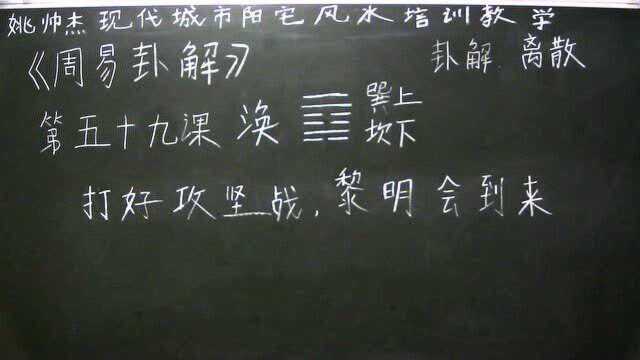 姚帅杰现代城市阳宅风水培训教学
《周易卦解》 卦解 离散
第五十九课 涣 巽上
坎下
打好攻坚战,黎明会到来